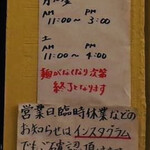 AM PM
11:00〜3:00
土
AM PM
11:00〜4:00
麺がなくなり次第
終了となります
営業日臨時休業などの
お知らせはインスタグラム
でご確認頂けます